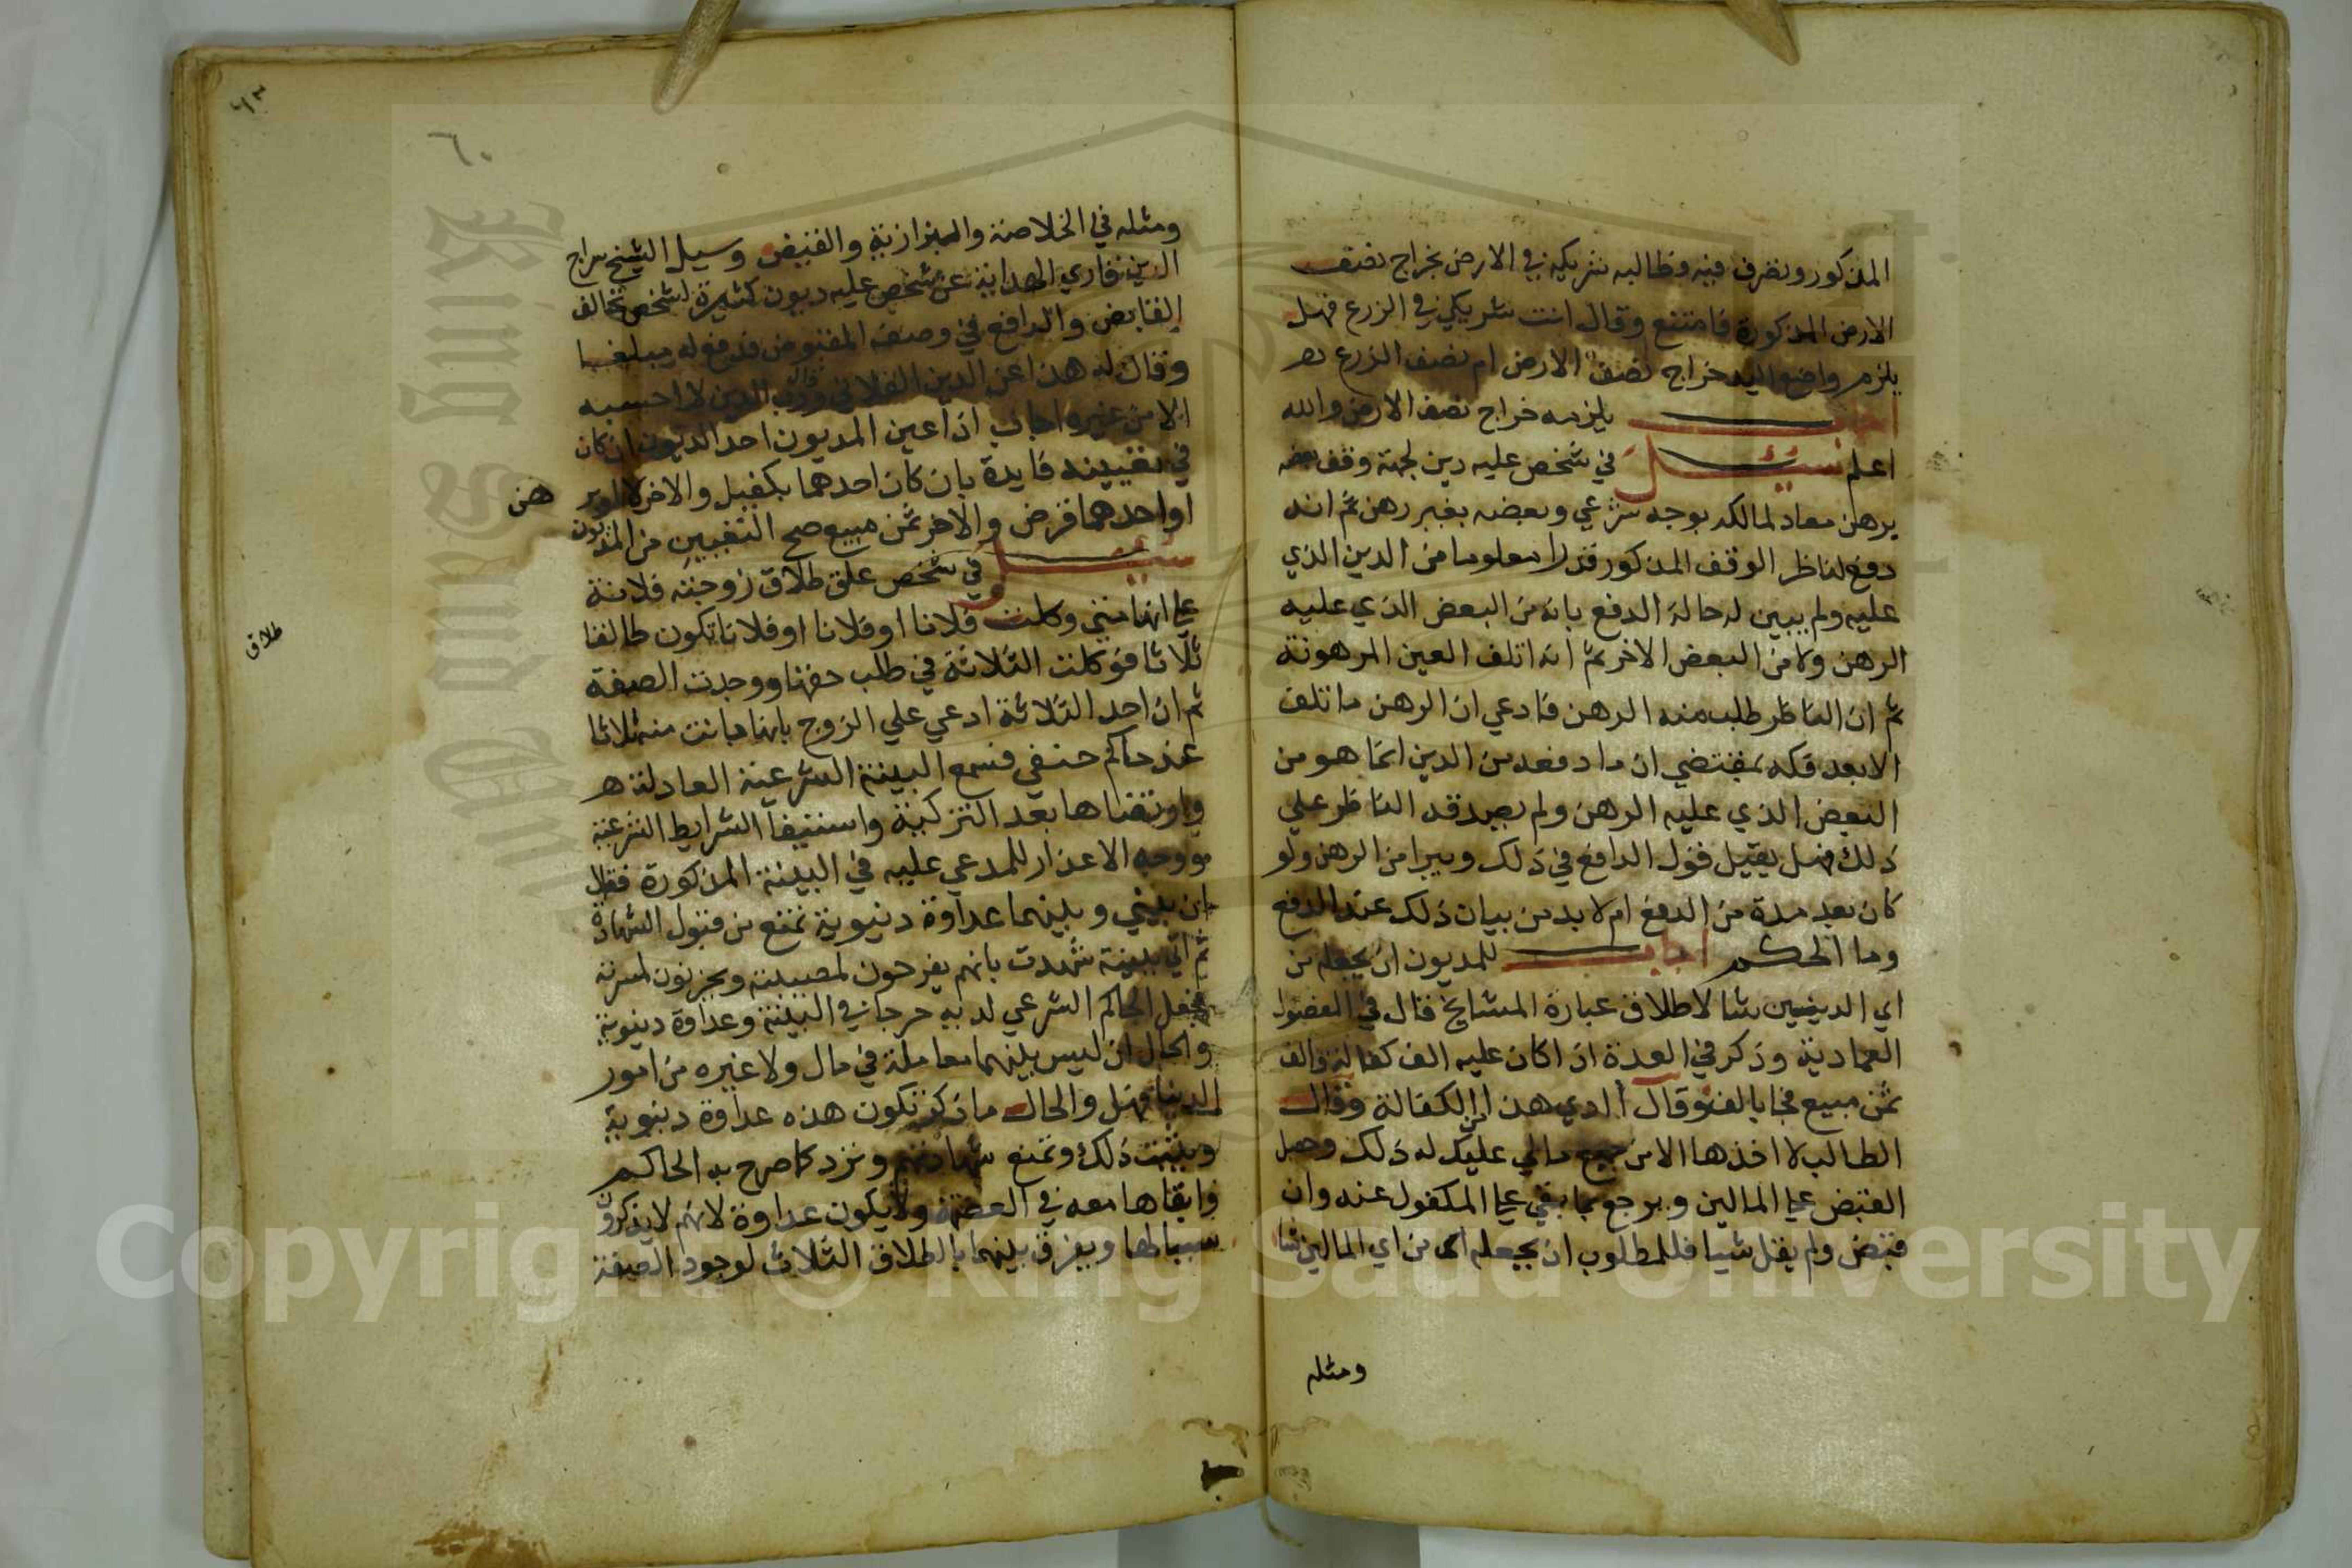 المذكور وتصرف فيه وطالبه شريكه في الارض بخراج نصف
الارض المذكورة فامتنع وقال انت شريكي في الزرع فهل
يلزم واضع اليد خراج نصف الارض ام نصف الزرع
اجاب يلزمه خراج نصف الارض والله
اعلم سيل في شخص عليه دين لجهة وقف بعضه
برهن معاد لمالكه بوجه شرعي وبعضه بغير رهن ثم انه
دفع لناظر الوقف المذكور قدرا معلوما من الدين الذي
عليه ولم يبين له حالة الدفع بانه من البعض الذي عليه
الرهن ولا من البعض الاخر ثم انه اتلف العين المرهونة
ثم ان الناظر طلب منه الرهن فادعي ان الرهن ما تلف
الا بعد فكه بمقتضي ان ما دفعه من الدين انما هو من
البعض الذي عليه الرهن ولم يصدقه الناظر علي
ذلك فهل يقبل قول الدافع في ذلك ويبرا من الرهن ولو
كان بعد مدة من الدفع ام لا بد من بيان ذلك عند الدفع
وما الحكم اجاب للمديون ان يجعله من
اي الدينين شا لاطلاق عبارة المشايخ قال في الفصول
العمادية وذكر في العدة اذا كان عليه الف كفالة والف
ثمن مبيع فجا بالف وقال اادي هذا من الكفالة وقال
الطالب لا اخذها الا من جميع مالي عليك له ذلك وجعل
القبض علي المالين ويرجع بما بقي علي المكفول عنه وان
قبض ولم يقل شيا فللمطلوب ان يجعله من اي المالين شا
ومثله
٦٠
ومثله في الخلاصة والبزازية والفيض وسيل الشيخ سراج
الدين قاري الهداية عن شخص عليه ديون كثيرة لشخص تخالف
القابض والدافع في وصف المقبوض فدفع له مبلغا
وقال له هذا عن الدين الفلاني وقال رب الدين لا احسبه
الا من غيره اجاب اذا عين المديون احد الديون ان كان
في تعيينه فايدة بان كان احدهما بكفيل والاخر لا او بر
هن
او احدهما قرض والاخر ثمن مبيع صح التعيين من المديون
سيل في شخص علق طلاق زوجته فلانة
علي انها متي وكلت فلانا او فلانا او فلانا تكون طالقا
طلاق
ثلاثا فوكلت الثلاثة في طلب حقها ووجدت الصفة
ثم ان احد الثلاثة ادعي علي الزوج بانها بانت منه ثلاثا
عند حاكم حنفي فسمع البينة الشرعية العادلة
وارتضاها بعد التزكية واستيفا الشرايط الشرعية
ووجه الاعذار للمدعي عليه في البينة المذكورة فقال
ان بيني وبينهما عداوة دنيوية تمنع من قبول الشهادة
ثم اتي ببينة شهدت بانهم يفرحون لمصيبته ويحزنون لمسرته
فجعل الحاكم الشرعي لديه حرجا في البينة وعداوة دنيوية
والحال ان ليس بينهما معاملة في مال ولا غيره من امور
الدنيا فهل والحال ما ذكر تكون هذه عداوة دنيوية
ويثبت ذلك وتمنع شهادتهم وترد كما صرح به الحاكم
وابقاها معه في العصمة ولا يكون عداوة لانهم لا يذكرون
سببا لها ويفرق بينهما بالطلاق الثلاث لوجود الصفة
Copyright © King Saud University